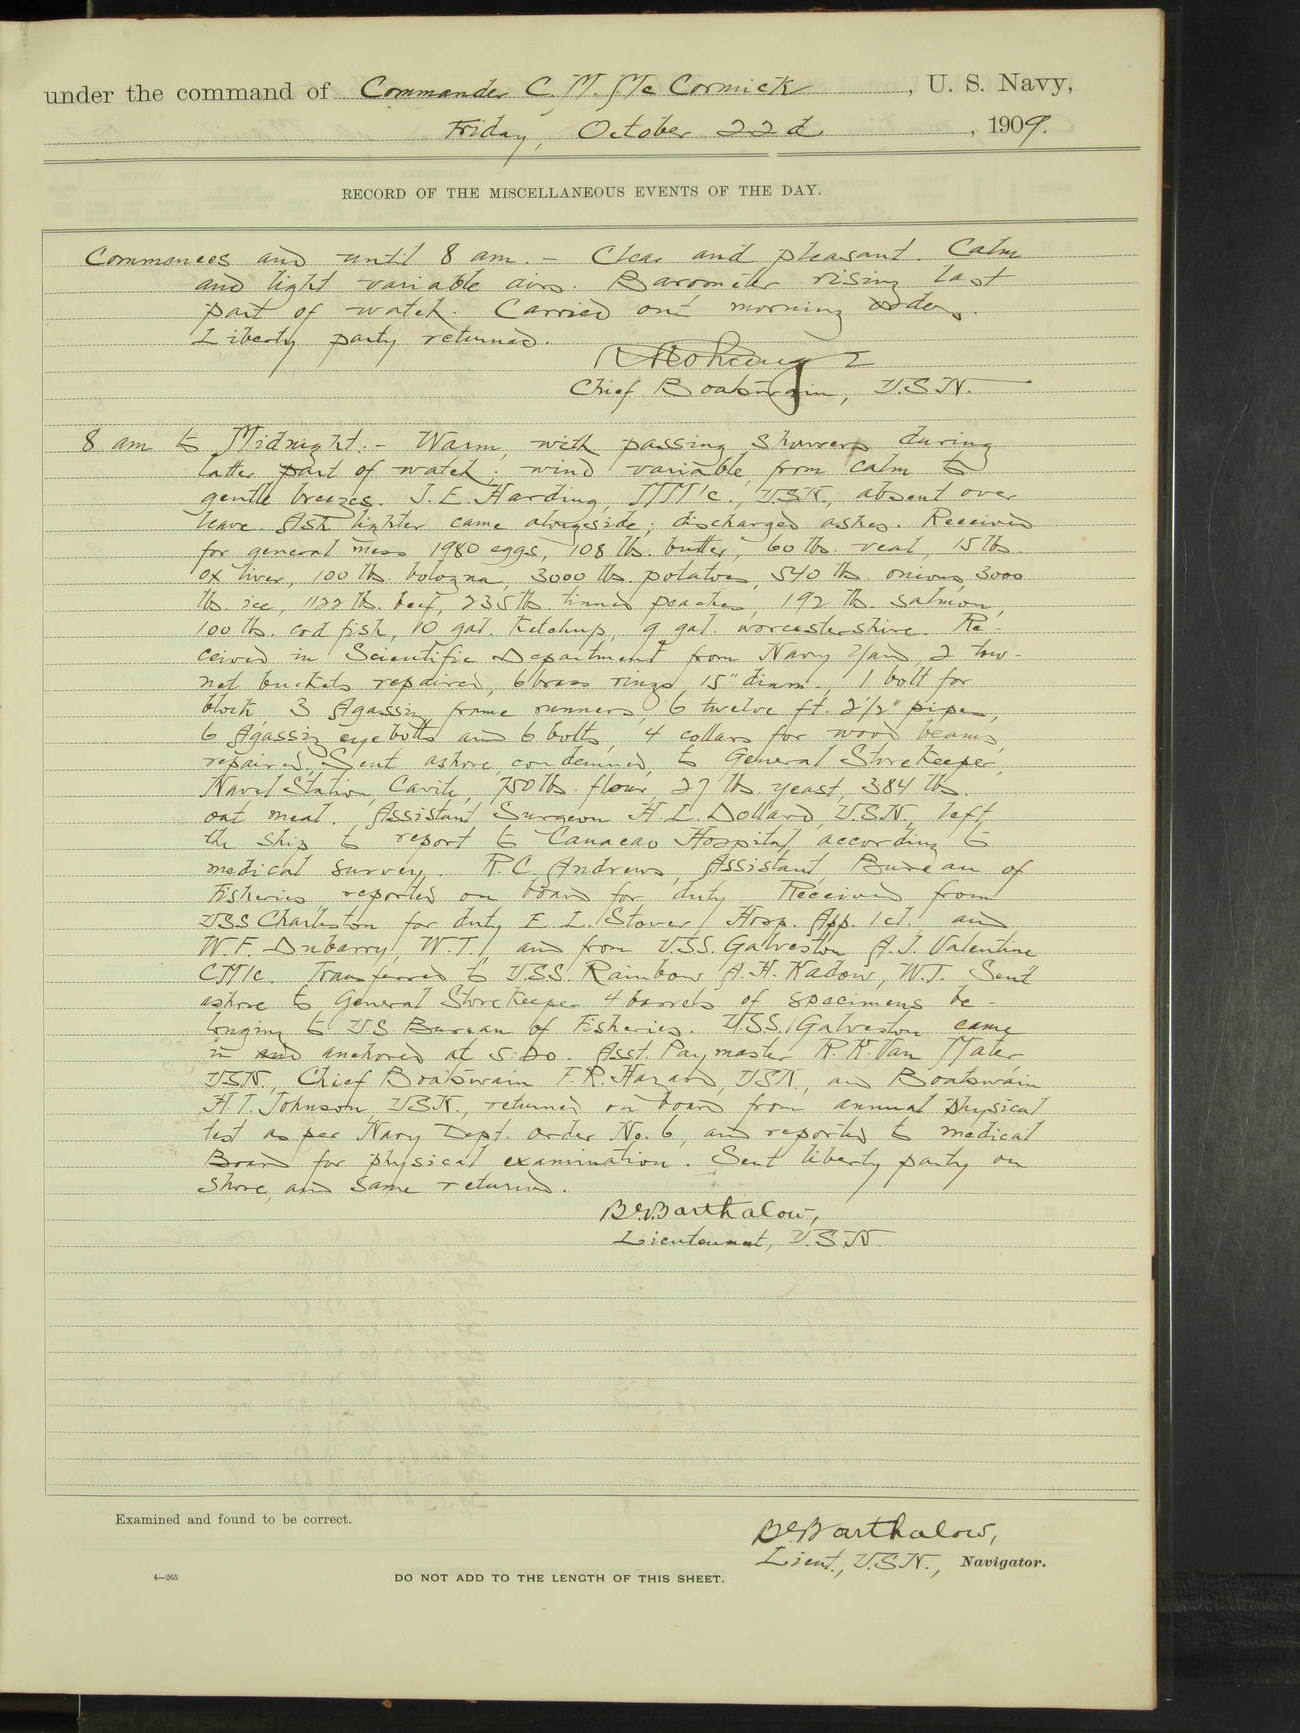 under the command of Commander C. M. McCormick, U. S. Navy,
Friday, October 22d, 1909.
RECORD OF THE MISCELLANEOUS EVENTS OF THE DAY.
Commences and until 8 am. - Clear and pleasant. Calm
and light variable airs. Barometer rising last
part of watch. Carried out morning orders.
Liberty party returned.
Chief Boatswain, U.S.N.
8 am to Midnight:- Warm, with passing showers during
latter part of watch; wind variable from calm to
gentle breezes. J. E. Harding, MM1c., USN, absent over
leave. Ash lighter came alongside; discharged ashes. Received
for general mess 1980 eggs, 108 lb. butter, 60 lbs. veal, 15 lbs.
ox liver, 100 lb. bologna, 3000 lb. potatoes, 540 lb. onions, 3000
lb. ice, 1122 lb. beef, 235 lb tinned peaches, 192 lb. salmon,
100 lb. cod fish, 10 gal. Ketchup, 9 gal. worcestershire. Re-
ceived in Scientific Department from Navy Yard, 2 tow-
net buckets repaired, 6 brass rings, 15" diam., 1 bolt for
block, 3 Agassiz frame runners, 6 twelve ft. 2 1/2" pipes,
6 Agassiz eyebolts and 6 bolts, 4 collars for wood beams,
repaired. Sent ashore, condemned, to General Storekeeper,
Naval Station, Cavite, 750 lb. flour, 27 lb. yeast, 384 lb.
oat meal. Assistant Surgeon H. L. Dollard, U.S.N., left
the ship to report to Canacao Hospital, according to
medical survey. R. C. Andrews, Assistant, Bureau of
Fisheries, reported on board for duty. Received from
USS Charleston for duty E. L. Stover, Hosp. App. 1cl. and
W. F. Dubarry, W.T., and from U.S.S. Galveston A. J. Valentine
CM1c. Transferred to U.S.S. Rainbow A. H. Kadow, W.T. Sent
ashore to General Storekeeper 4 barrels of specimens be-
longing to U.S. Bureau of Fisheries. U.S.S. Galveston came
in and anchored at 5:20. Asst. Paymaster R. K. Van Mater
USN., Chief Boatswain F. R. Hazard, USN., and Boatswain
H. T. Johnson, USN., returned on board from annual physical
test as per Navy Dept. order No. 6, and reported to medical
Board for physical examination. Sent liberty party on
shore, and same returned.
Barthalow,
Lieutenant, U.S.N.
Examined and found to be correct.
Barthalow,
Lieut., U.S.N., Navigator.
4—265
DO NOT ADD TO THE LENGTH OF THIS SHEET.